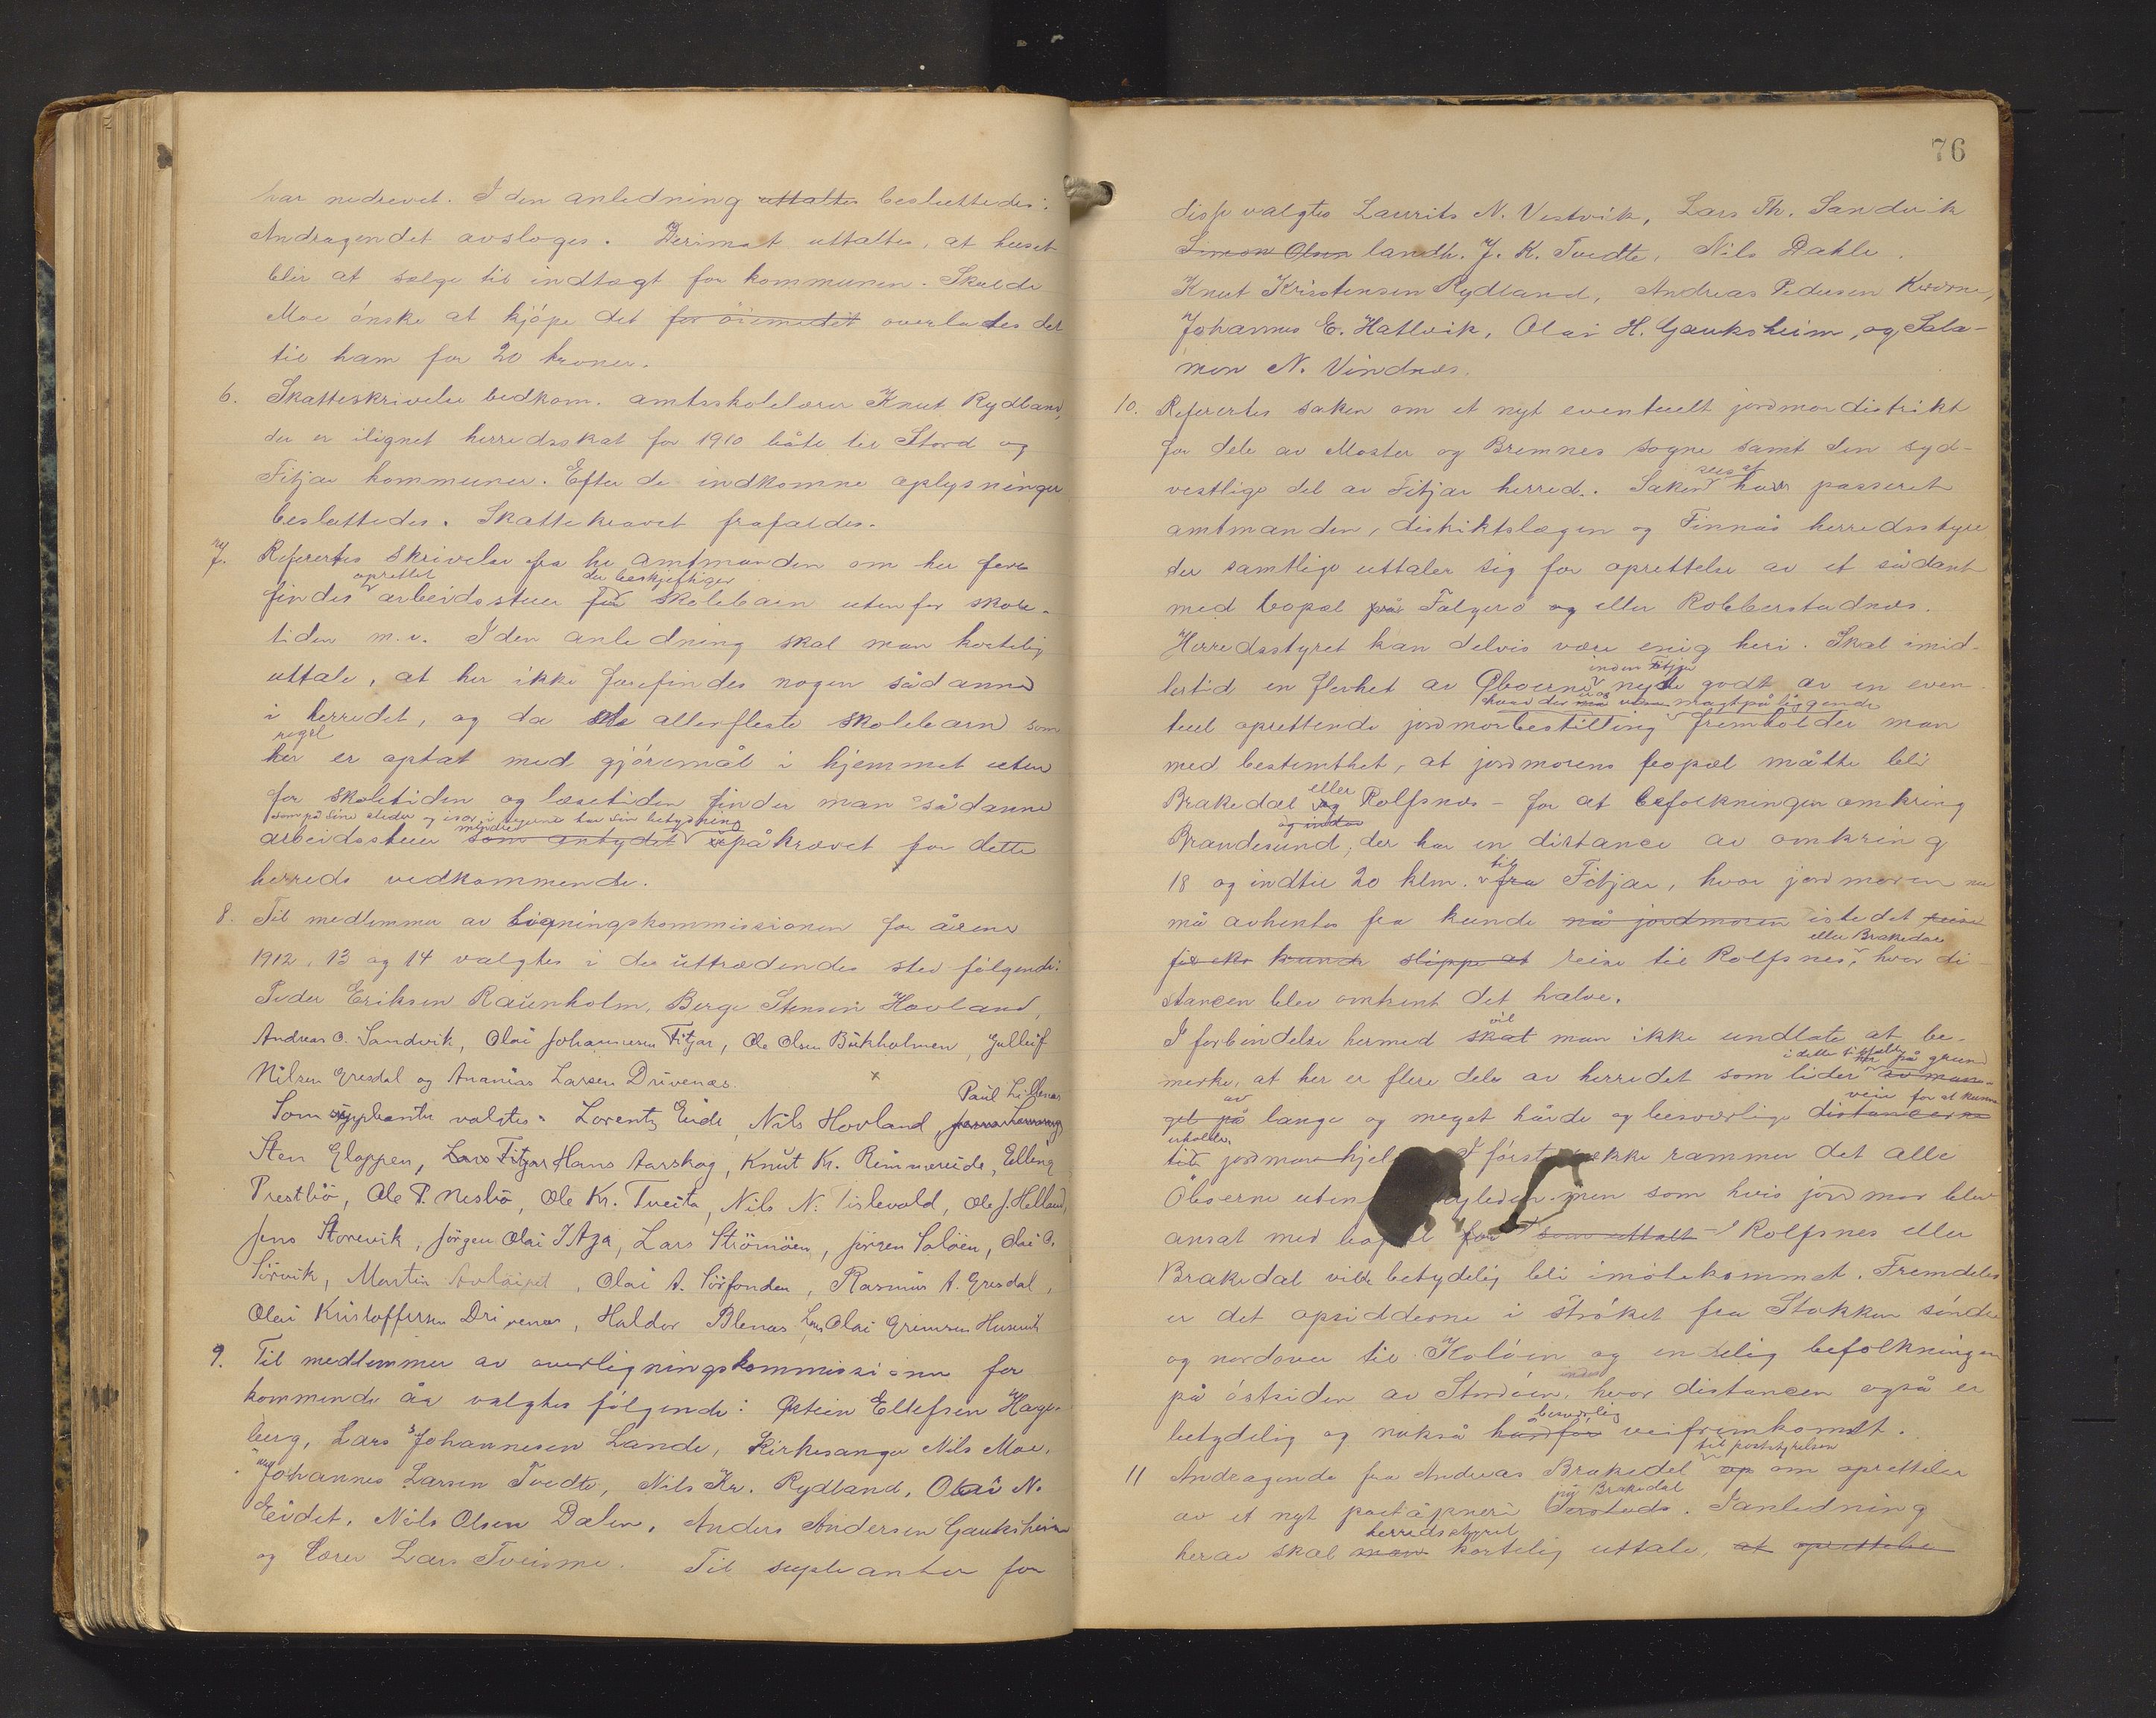 har nedrevet. I den anledning uttaltes beslættedes:
Andragendet avsloges. Derimot uttaltes, at huset
blir at sælge til indtægt for kommunen. Skulde
Moe ønske at kjøpe det for øiemedet overlades det
til ham for 20 kroner.
6. Skatteskrivelse bedkom. amtsskolelærer Knut Rydland,
der er ilignet herredsskat for 1910 både til Stord og
Fitjar kommuner. Efter de indkomne oplysninger
beslættedes. Skattekravet frafaldes.
7. Referertes skrivelse fra hr. amtmanden om her fore
oprettet der beskjeftiger
findes arbeidsstuer for skolebarn utenfor skole-
tiden m.v. I den anledning skal man kortelig
uttale, at her ikke forefindes nogen sådanne
i herredet, og da de allerfleste skolebarn som
regel
her er optat med gjøremål i hjemmet uten
for skoletiden og læsetiden finder man sådanne
som på sine steder og især i byerne har sin betydning
mindre
arbeidsstuer som antydet påkrævet for dette
herreds vedkommende.
8. Til medlemmer av ligningskommissionen for årene
1912, 13 og 14 valgtes i de uttrædendes sted følgende:
Peder Eriksen Raunholm, Berge Stensen Hovland,
Andreas O. Sandvik, Olai Johannesen Fitjar, Ole Olsen Birkholmen, Gulleif
Nilsen Gresdal og Ananias Larsen Drivenæs. x
Paul Lillenæs
Som suppleanter valgtes: Lorentz Eide, Nils Hovland,
Sten Gloppen, Lars Fitjar Hans Aarskog, Knut Kr. Rimmereide, Elling
Prestbø, Ole P. Nesbø, Ole Kr. Tveita, Nils N. Tislevold, Ole J. Helland,
Jens Storevik, Jørgen Olai Itga, Lars Strømøen, Jørgen Soløen, Olai O.
Sørvik, Martin Avløipet, Olai A. Sørfonden, Rasmus A. Gresdal,
Olai Kristoffersen Drivenæs, Haldor Blenæs Lars Olai Husevik
9. Til medlemmer av overligningskommissionen for
kommende år valgtes følgende: Østein Ellefsen Hage-
berg, Lars Johannesen Lande, Kirkesanger Nils Moe,
Johannes Larsen Tvedte, Nils Kr. Rydland, Olai N.
Eidet, Nils Olsen Dalen, Anders Andersen Gauksheim
og lærer Lars Tveisme. Til supleanter for
76
disse valgtes Laurits N. Vestvik, Lars Th. Sandvik
Simon Olsen landh. J. K. Tvedte, Nils Dahle.
Knut Kristensen Rydland, Andreas Pedersen Kværne,
Johannes E. Hatlvik, Olai H. Gauksheim, og Sala-
mon N. Vindnæs.
10. Referertes saken om et nyt eventuelt jordmordistrikt
for dele av Moster og Bremnes sogne samt den syd-
sees at
vestlige del av Fitjar herred. Saken har passeret
amtmanden, distriktslægen og Finnås herredsstyre
der samtlige uttaler sig for oprettelse av et sådant
med bopæl på Fælgerø og eller Robberstadnæs.
Herredsstyret kan delvis være enig heri. Skal imid-
inden Fitjar
lertid en flerhet av Øboerne nyde godt av en even
hvad der er os magtpåliggende
tuel oprettende jordmorbestilling fremholder man
med bestemthet, at jordmorens bopæl måtte bli
eller
Brakedal og Rolfsnæs – for at befolkningen omkring
og indtil
Brandesund, der har en distance av omkring
til
18 og indtil 20 klm. fra Fitjar, hvor jordmoren nu
må avhentes fra kunde nå jordmoren istedet reise
eller Brakedal
kunde slippe at reise til Rolfsnes, hvor di-
stancen blev omtrent det halve.
vil
I forbindelse hermed skal man ikke undlate at be-
i dette tilfælde på grund
merke, at her er flere dele av herredet som lider av man-
av veie for at kunne
gel på lange og meget hårde og besværlige distancerne
erholde
til jordmorhjel I første række rammer det alle
Øboerne uten leden men som hvis jordmor blev
ansat med bopæl for som uttalt Rolfsnes eller
Brakedal vilde betydelig bli imøtekommet. Fremdeles
er det opsidderne i strøket fra Stokken sønde
og nordover til Koløen og endelig befolkningen
på østsiden av Stordøen, hvor distancen også er
besværlig
betydelig og nokså hårdfør veifremkomst.
til poststyrelsen
11 Andragende fra Andreas Brakedal op om oprettelse
på Brakedal
av et nyt poståpneri dersteds. I anledning
herredsstyret
herav skal man kortelig uttale, at oprettelse